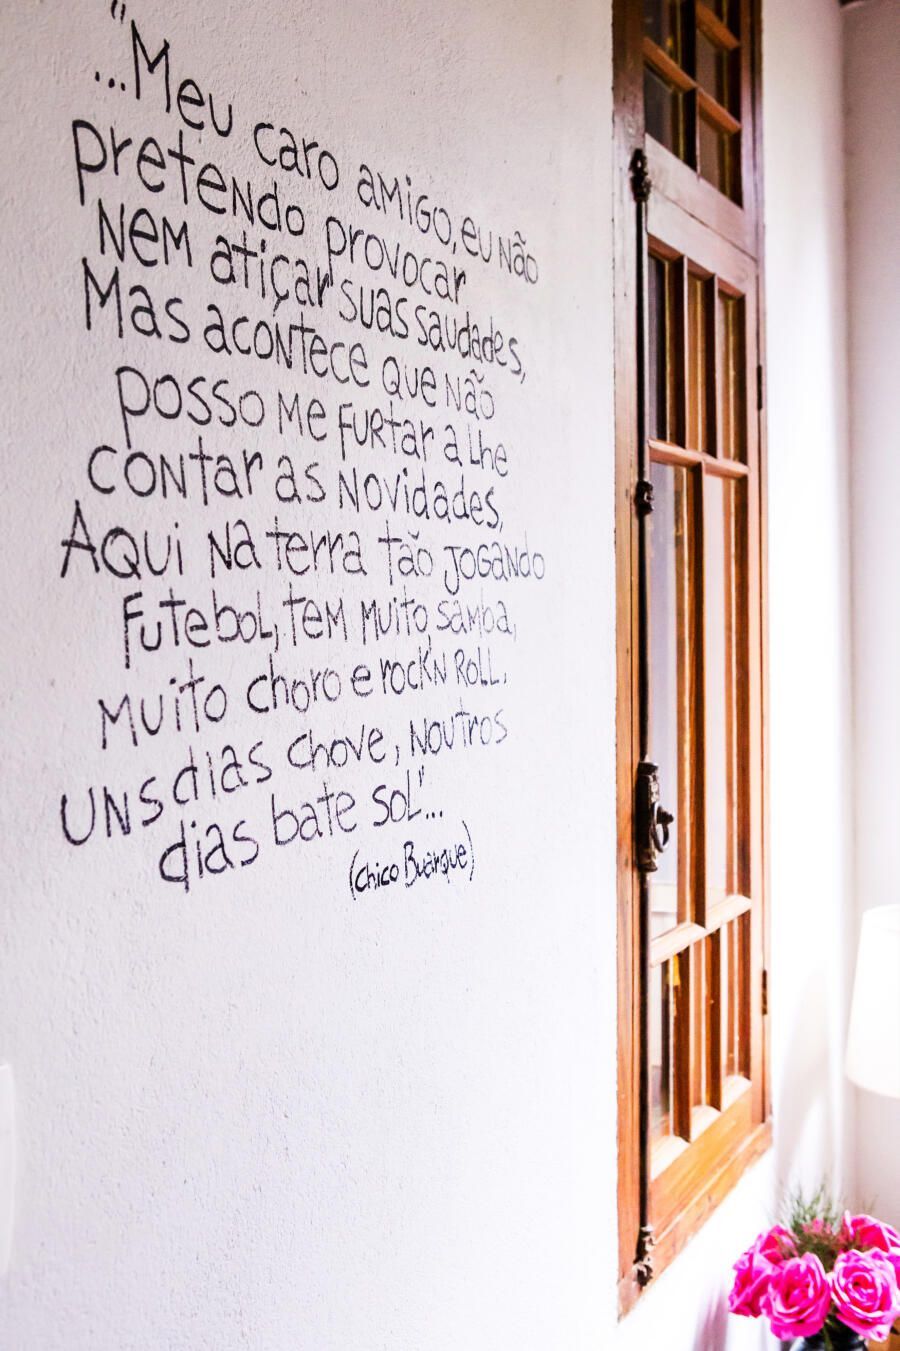 "...Meu caro amigo, eu não
pretendo provocar
nem atiçar suas saudades,
Mas acontece que não
posso me furtar a lhe
contar as novidades,
Aqui na terra tão jogando
futebol, tem muito samba,
muito choro e rock'n roll,
uns dias chove, noutros
dias bate sol"...
(Chico Buarque)